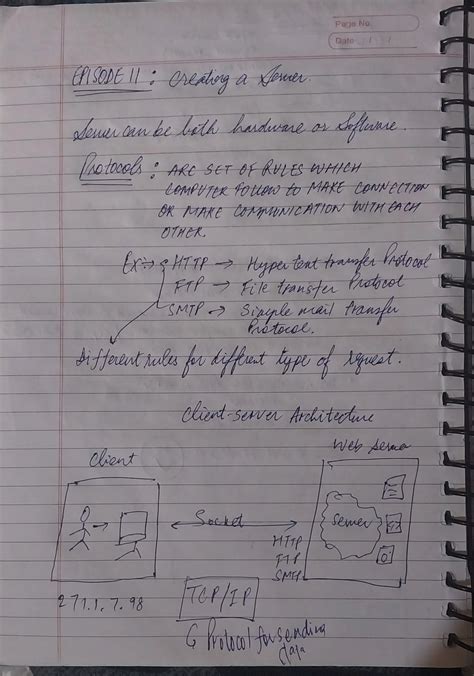 Page No.
Date / /
EPISODE 11 : Creating a Server.
Server can be both hardware or Software.
Protocols : ARE SET OF RULES WHICH
COMPUTER FOLLOW TO MAKE CONNECTION
OR MAKE COMMUNICATION WITH EACH
OTHER.
Ex → HTTP → Hypertext transfer Protocol
FTP → File transfer Protocol
SMTP → Simple mail transfer
Protocol.
Different rules for different type of request.
Client-server Architecture
Client
Web Server
Socket
Server
HTTP
FTP
SMTP
271.1.7.98
TCP/IP
Protocol for sending
data